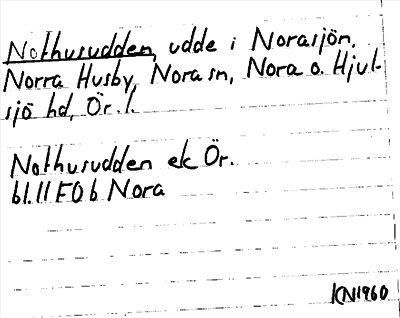 Nothusudden, udde i Norasjön,
Norra Husby, Nora sn, Nora o. Hjul-
sjö hd, Ör. l.
Nothusudden ek Ör.
bl. 11 F0b Nora
KN1960